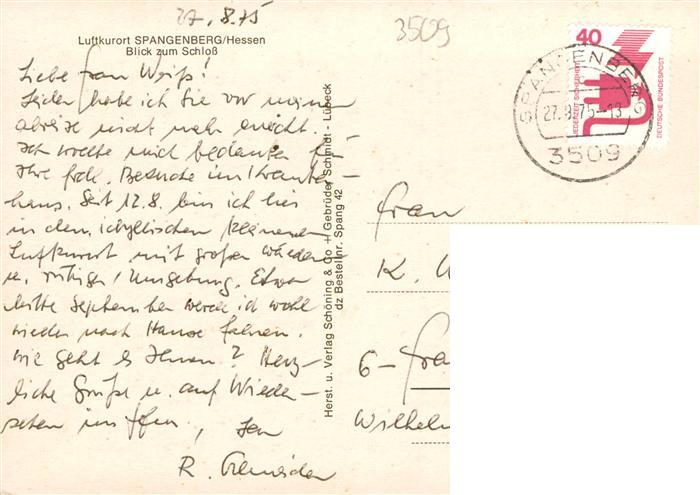 27.8.75
3509
Luftkurort SPANGENBERG/Hessen
Blick zum Schloß
Liebe Frau Weiß!
Leider habe ich Sie vor meiner
Abreise nicht mehr erreicht.
Ich wollte mich bedanken für
Ihre frdl. Besuche im Kranken-
haus. Seit 12.8. bin ich hier
in dem idyllischen kleinen
Luftkurort mit großen Wäldern
u. ruhiger Umgebung. Etwa
Mitte September werde ich wohl
wieder nach Hause fahren.
Wie geht es Ihnen? Herz-
liche Grüße u. auf Wieder-
sehen in Ffm, Ihr
R.
Herst. u. Verlag Schöning & Co + Gebrüder Schmidt - Lübeck
dz Bestellnr. Spang 42
40
JEDERZEIT SICHERHEIT
DEUTSCHE BUNDESPOST
SPANGENBERG
27.8.75-13
3509
Frau
K. W
6-Fra
Wilhelm